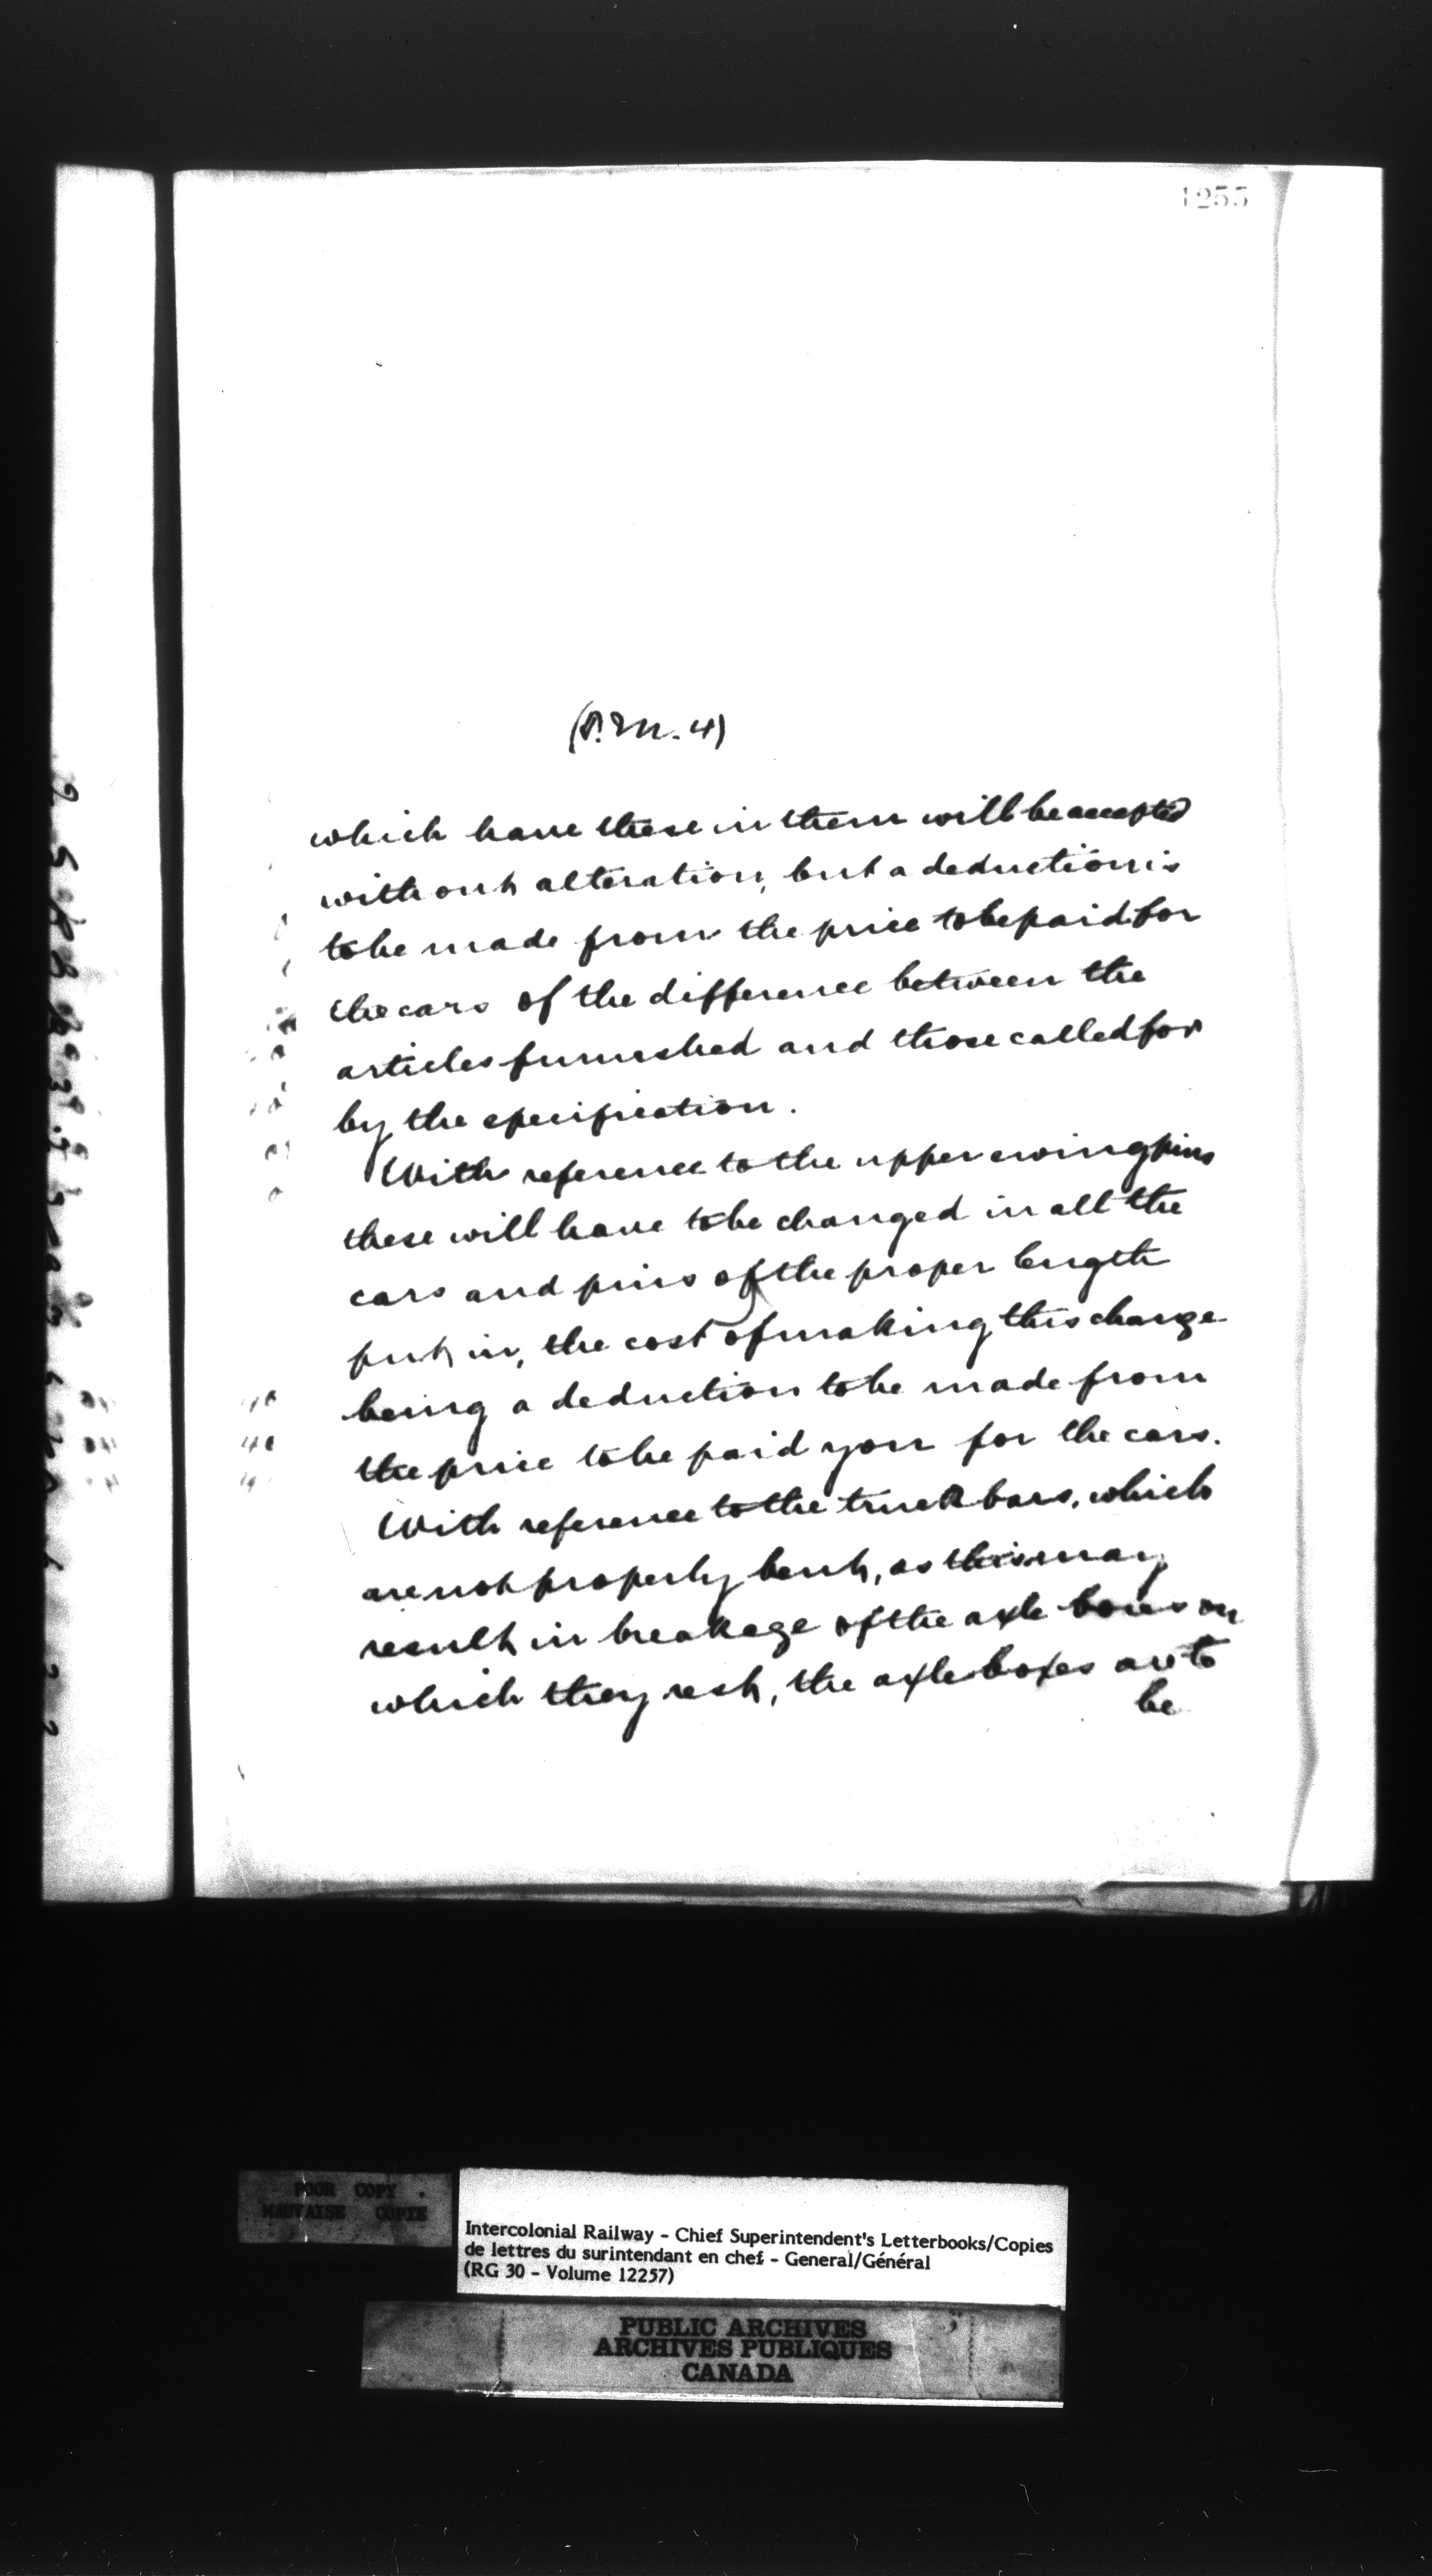 1255
(P.M. 4)
which have these in them will be accepted
without alteration, but a deduction is
to be made from the price to be paid for
the cars of the difference between the
articles furnished and those called for
by the specification.
With reference to the upper swing pins
these will have to be changed in all the
cars and pins of the proper length
put in, the cost of making this change
being a deduction to be made from
the price to be paid you for the cars.
With reference to the truck bars, which
are not properly bent, as this may
result in breakage of the axle boxes on
which they rest, the axle boxes are to
be
POOR COPY
MAUVAISE COPIE
Intercolonial Railway - Chief Superintendent's Letterbooks/Copies
de lettres du surintendant en chef - General/Général
(RG 30 - Volume 12257)
PUBLIC ARCHIVES
ARCHIVES PUBLIQUES
CANADA